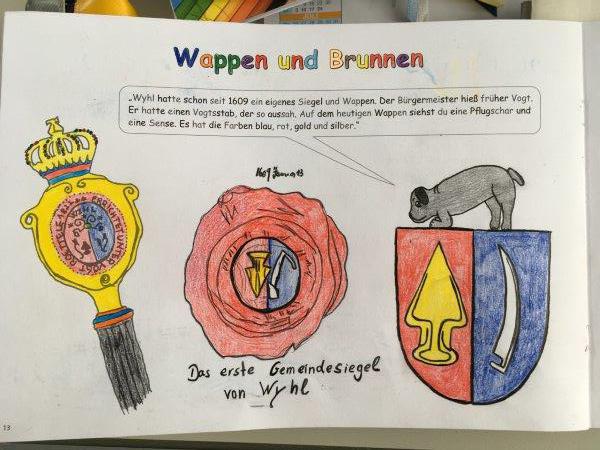 Wappen und Brunnen
„Wyhl hatte schon seit 1609 ein eigenes Siegel und Wappen. Der Bürgermeister hieß früher Vogt.
Er hatte einen Vogtsstab, der so aussah. Auf dem heutigen Wappen siehst du eine Pflugschar und
eine Sense. Es hat die Farben blau, rot, gold und silber.“
ERRICHTET UNTER VOGT
WYHL
Das erste Gemeindesiegel
von Wyhl
13